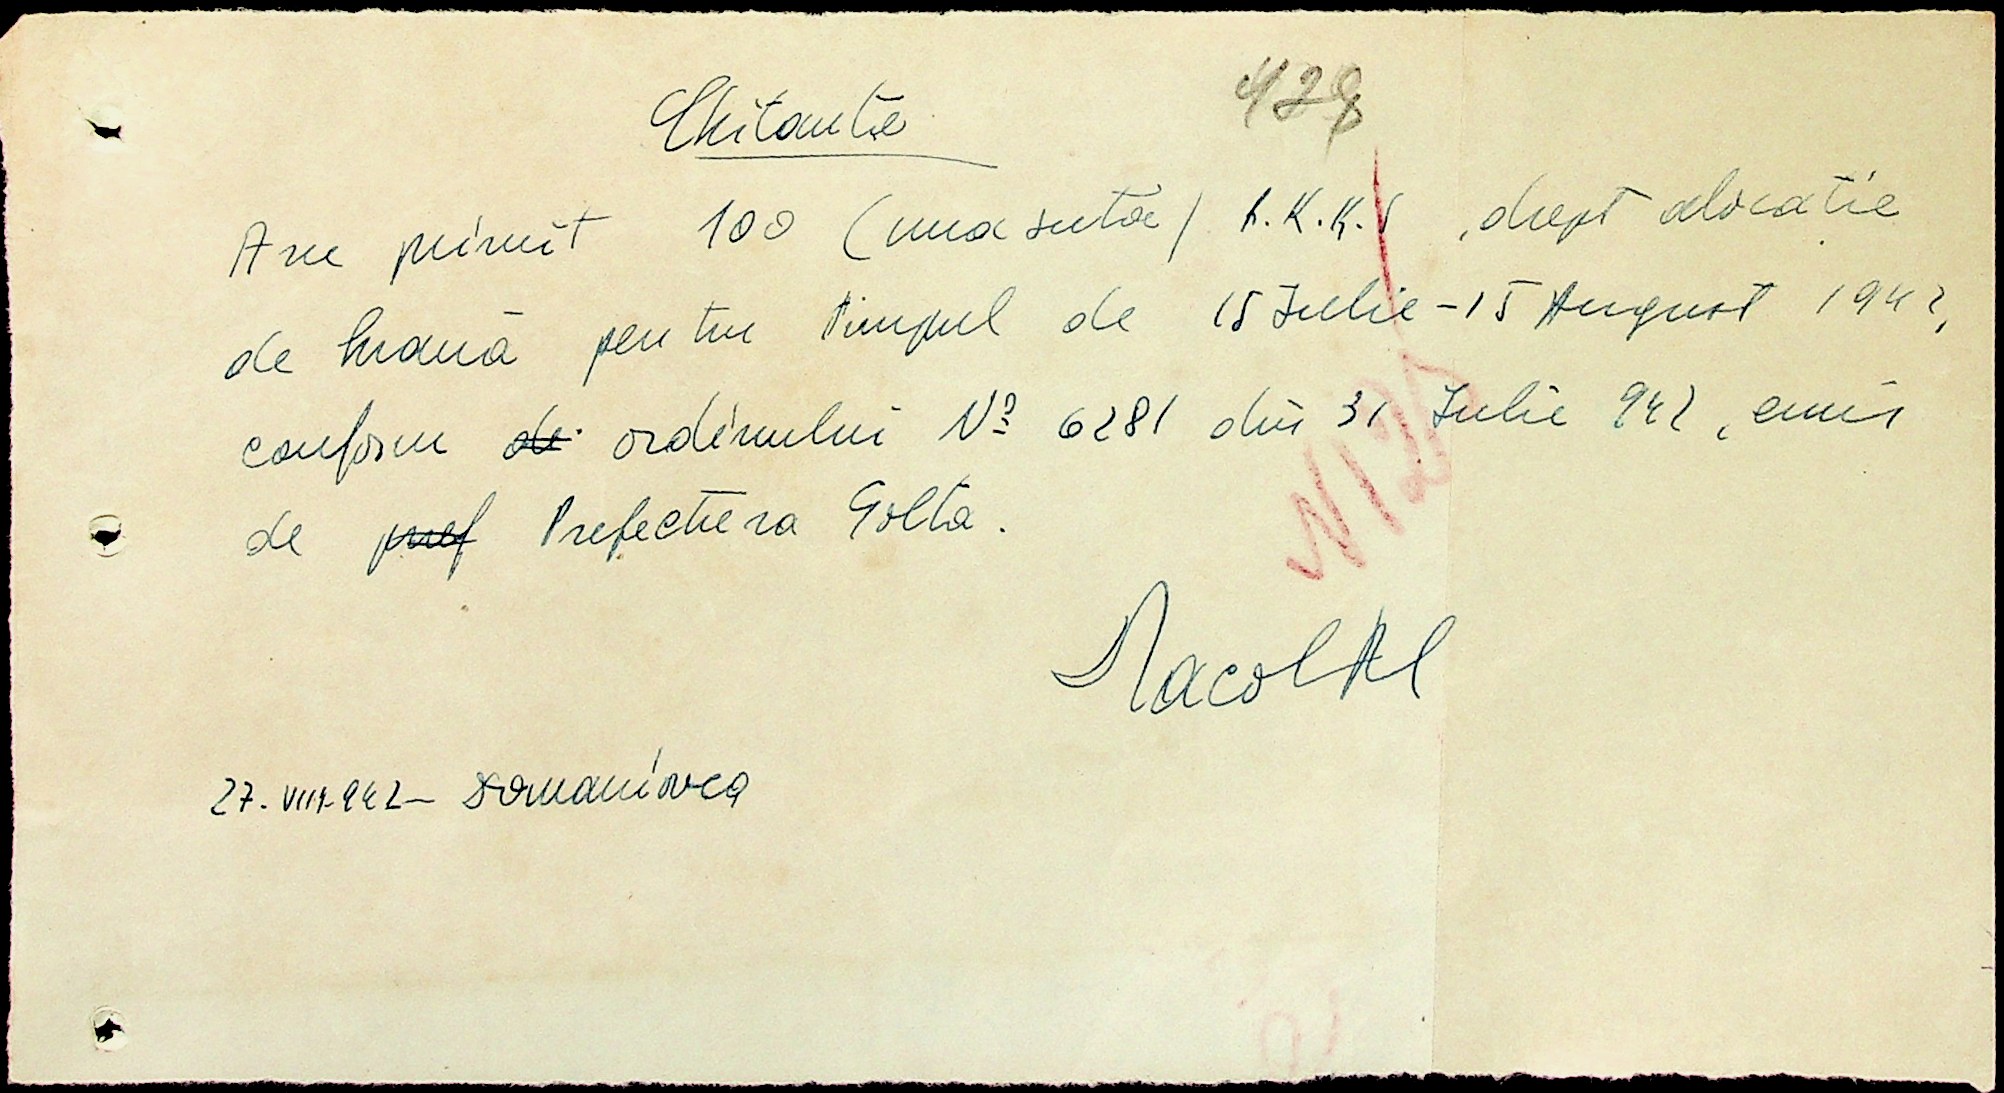 Chitanta
429
Am primit 100 (una suta) R.K.K.S, drept alocatie
de hrană pentru timpul de 15 Iulie - 15 August 1942,
conform de ordinului Nº 6281 din 31 Iulie 942, emis
de pref Prefectura Golta.
27.VIII.942 - Domaniovca